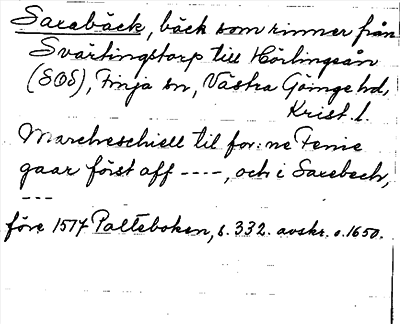 Saxabäck, bäck som rinner från
Svärtingstorp till Hörlingeån
(SOS), Finja sn, Västra Göinge hd,
Krist. l.
Marcheschiell til for: ne Fenie
gaar först aff ----, och i Saxebech,
---
före 1517 Palteboken, s. 332. avskr. o. 1650.